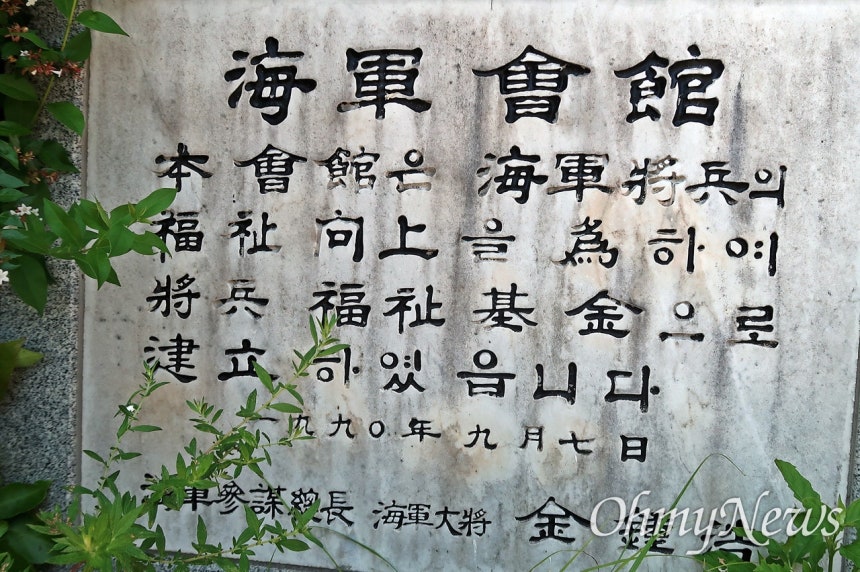 海軍會館
本 會館은 海軍將兵의
福祉向上을 為하여
將兵福祉基金으로
建立하였읍니다
一九九〇年 九月七日
海軍參謀總長 海軍大將 金
OhmyNews